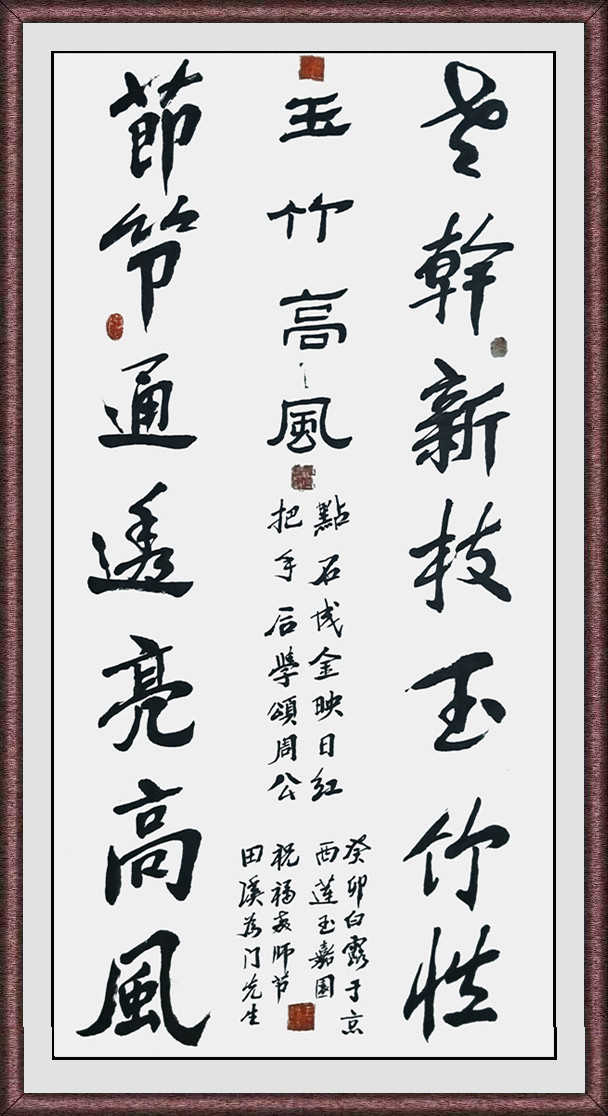 老幹新技玉竹性
玉竹高風
點石成金映日红
把手后學頌周公
癸卯白露于京
西蓮玉嘉園
祝福教師节
田溪为门先生
節节通透亮高風